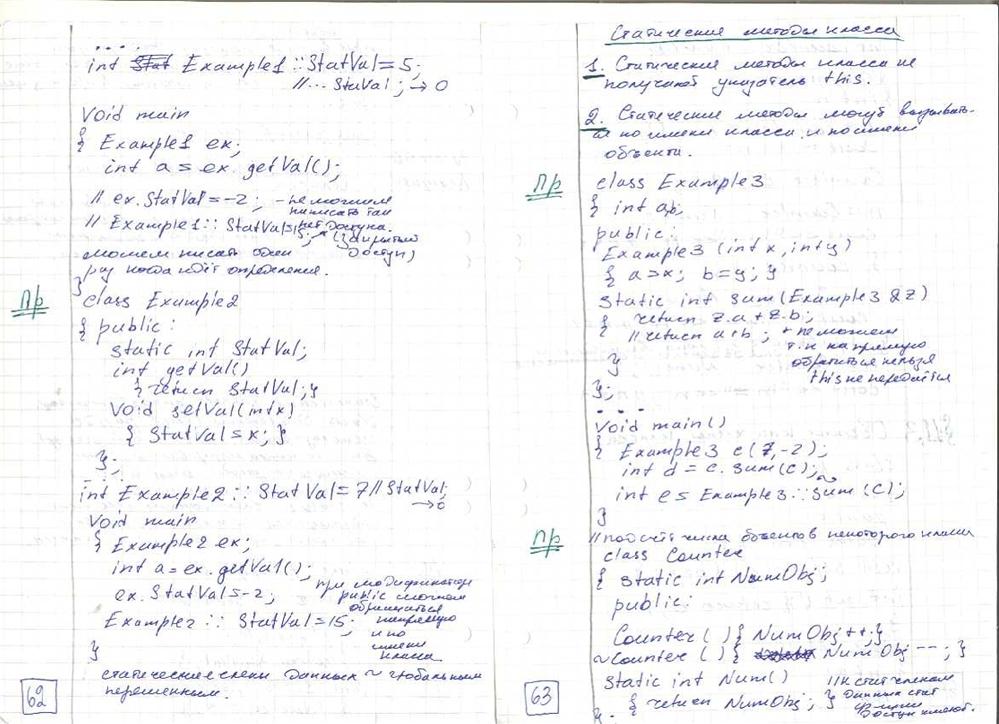 . . . .
int Example1 :: StatVal = 5;
//... StatVal ; → 0
void main
{ Example1 ex;
int a = ex. getVal();
// ex. StatVal = -2; - не можем
написать так
// Example1 :: StatVal = 15; нет доступа.
(закрытый
можем писать один доступ)
раз когда идёт определение.
}
Пр class Example2
{ public :
static int StatVal;
int getVal()
{ return StatVal; }
void setVal(int x)
{ StatVal = x; }
};
int Example2 :: StatVal = 7 // StatVal;
→ 0
void main
{ Example2 ex;
int a = ex. getVal();
ex. StatVal = -2;
Example2 :: StatVal = 15;
}
при модификаторе
public можем
обращаться
напрямую
и по
имени
класса
статические члены данных ~ глобальным
переменным.
62
Статические методы класса
1. Статические методы класса не
получают указатель this.
2. Статические методы могут вызывать-
ся по имени класса и по имени
объекта.
Пр class Example3
{ int a,b;
public:
Example3 (int x, int y)
{ a = x; b = y; }
static int sum (Example3 &z)
{ return z.a + z.b;
// return a+b ; не можем
т.к напрямую
обратиться нельзя
this не передаётся
}
};
. . . .
void main()
{ Example3 c(7, -2);
int d = c. sum(c);
int e = Example3 :: sum (c);
}
Пр // подсчёт числа объектов некоторого класса
class Counter
{ static int NumObj;
public:
Counter () { NumObj ++; }
~Counter () { NumObj --; }
static int Num()
{ return NumObj; }
};
// к стат членам
данных стат
функции
доступ имеют.
63